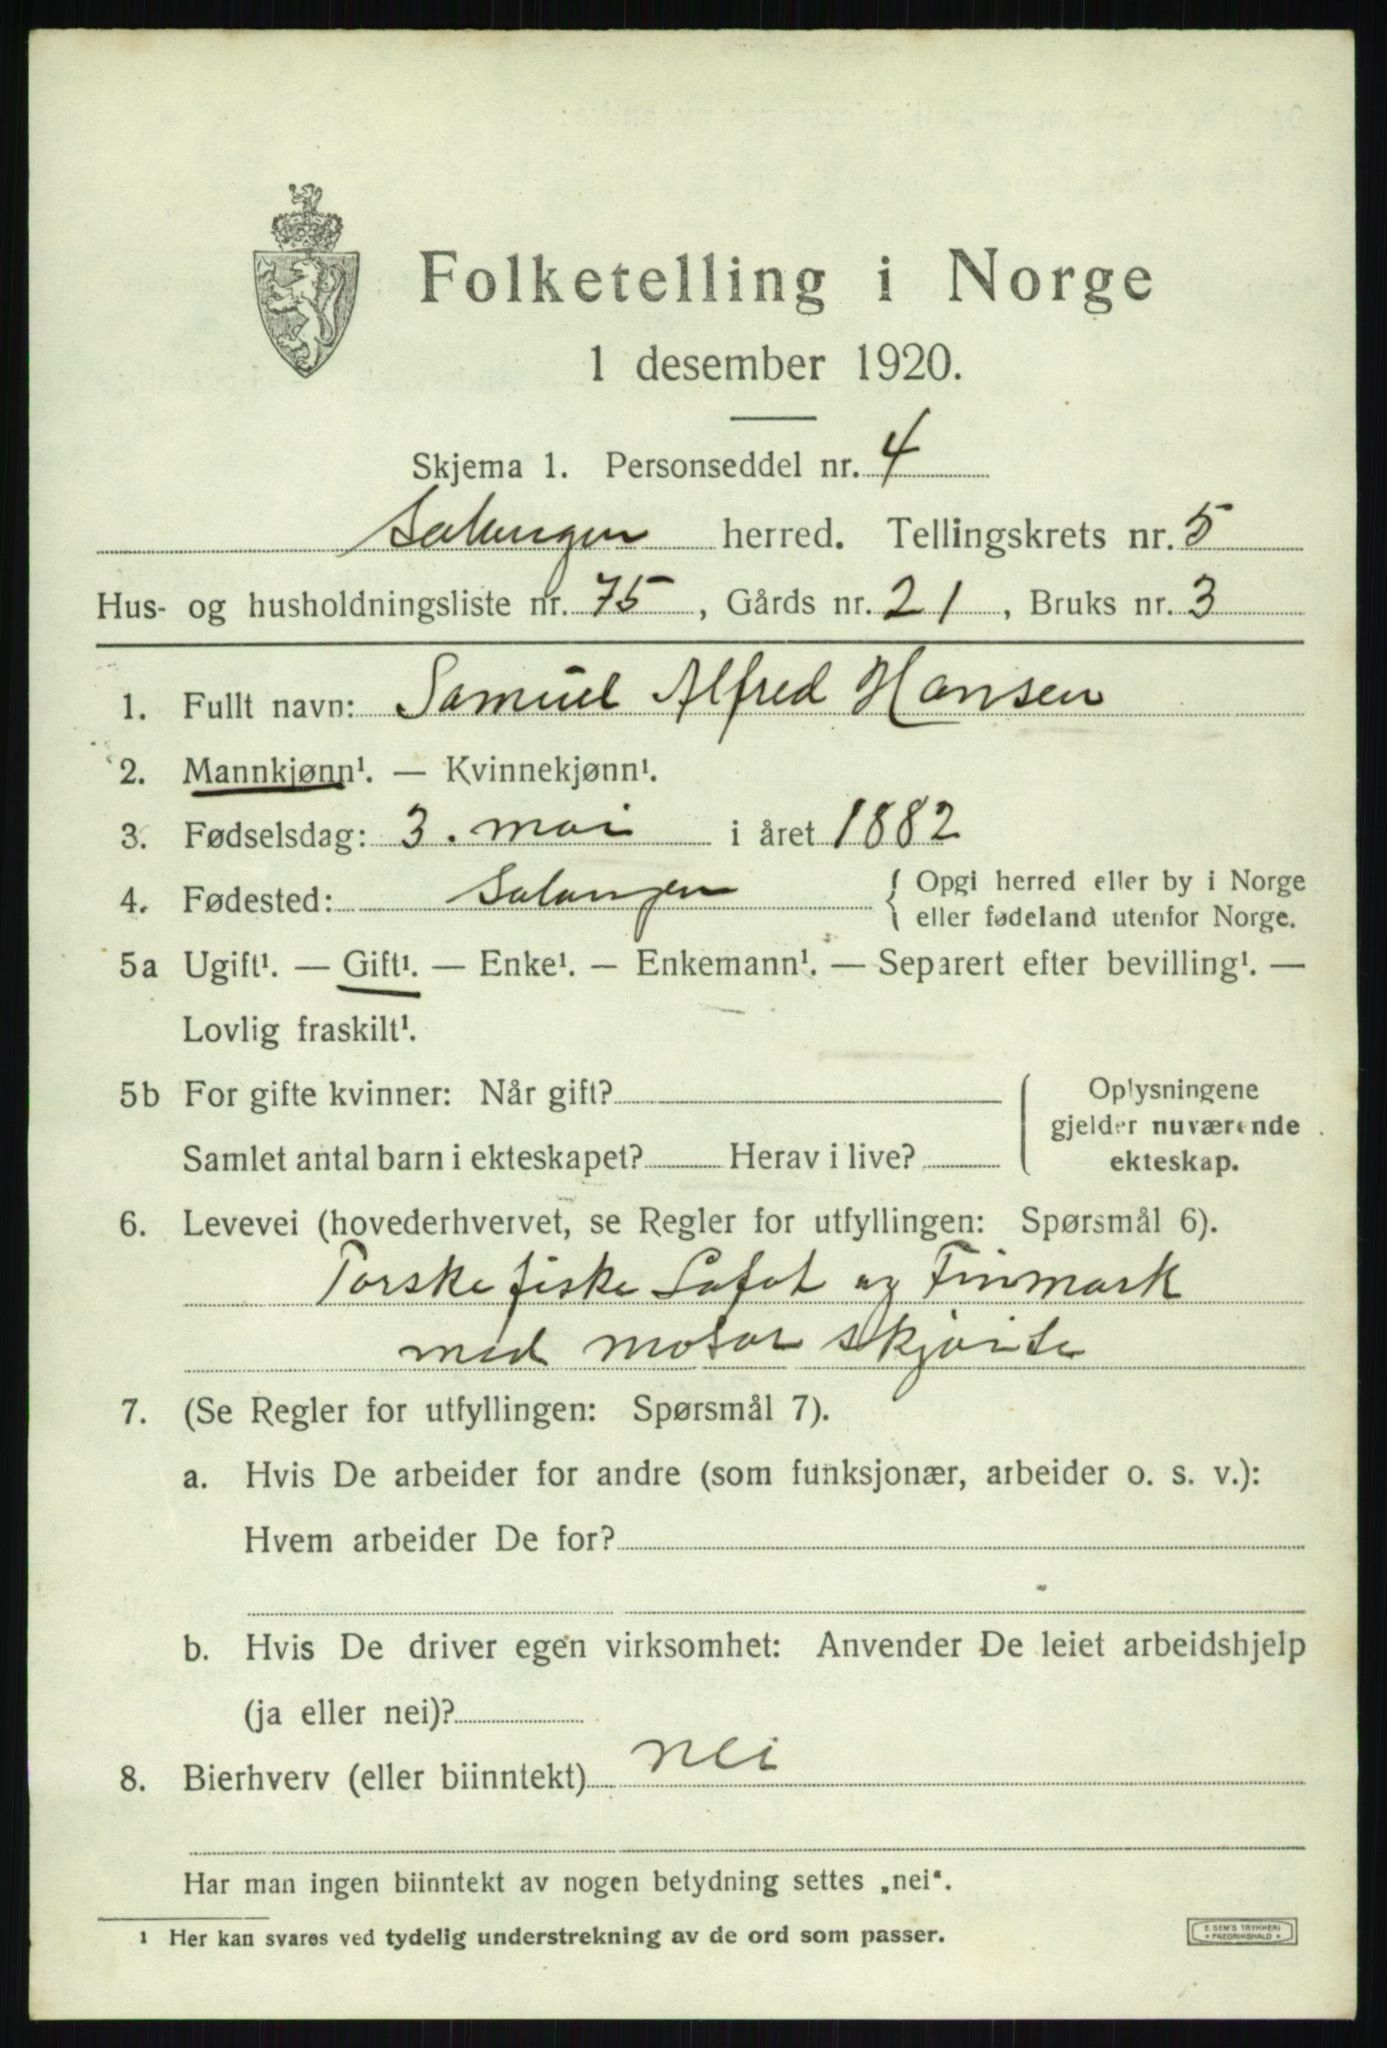 Folketelling i Norge
1 desember 1920.
Skjema 1. Personseddel nr. 4
Salangen herred. Tellingskrets nr. 5
Hus- og husholdningsliste nr. 75, Gårds nr. 21, Bruks nr. 3
1. Fullt navn: Samuel Alfred Hansen
2. Mannkjønn¹. — Kvinnekjønn¹.
3. Fødselsdag: 3. mai i året 1882
4. Fødested: Salangen { Opgi herred eller by i Norge
eller fødeland utenfor Norge.
5a Ugift¹. — Gift¹. — Enke¹. — Enkemann¹. — Separert efter bevilling¹. —
Lovlig fraskilt¹.
5b For gifte kvinner: Når gift?
Samlet antal barn i ekteskapet? Herav i live?
Oplysningene
gjelder nuværende
ekteskap.
6. Levevei (hovederhvervet, se Regler for utfyllingen: Spørsmål 6).
Torskefiske Lofot og Finmark
med motor skjøite
7. (Se Regler for utfyllingen: Spørsmål 7).
a. Hvis De arbeider for andre (som funksjonær, arbeider o. s. v.):
Hvem arbeider De for?
b. Hvis De driver egen virksomhet: Anvender De leiet arbeidshjelp
(ja eller nei)?
8. Bierhverv (eller biinntekt) nei
Har man ingen biinntekt av nogen betydning settes „nei“.
¹ Her kan svares ved tydelig understrekning av de ord som passer.
E. SEM'S TRYKKERI
• FREDRIKSHALD •